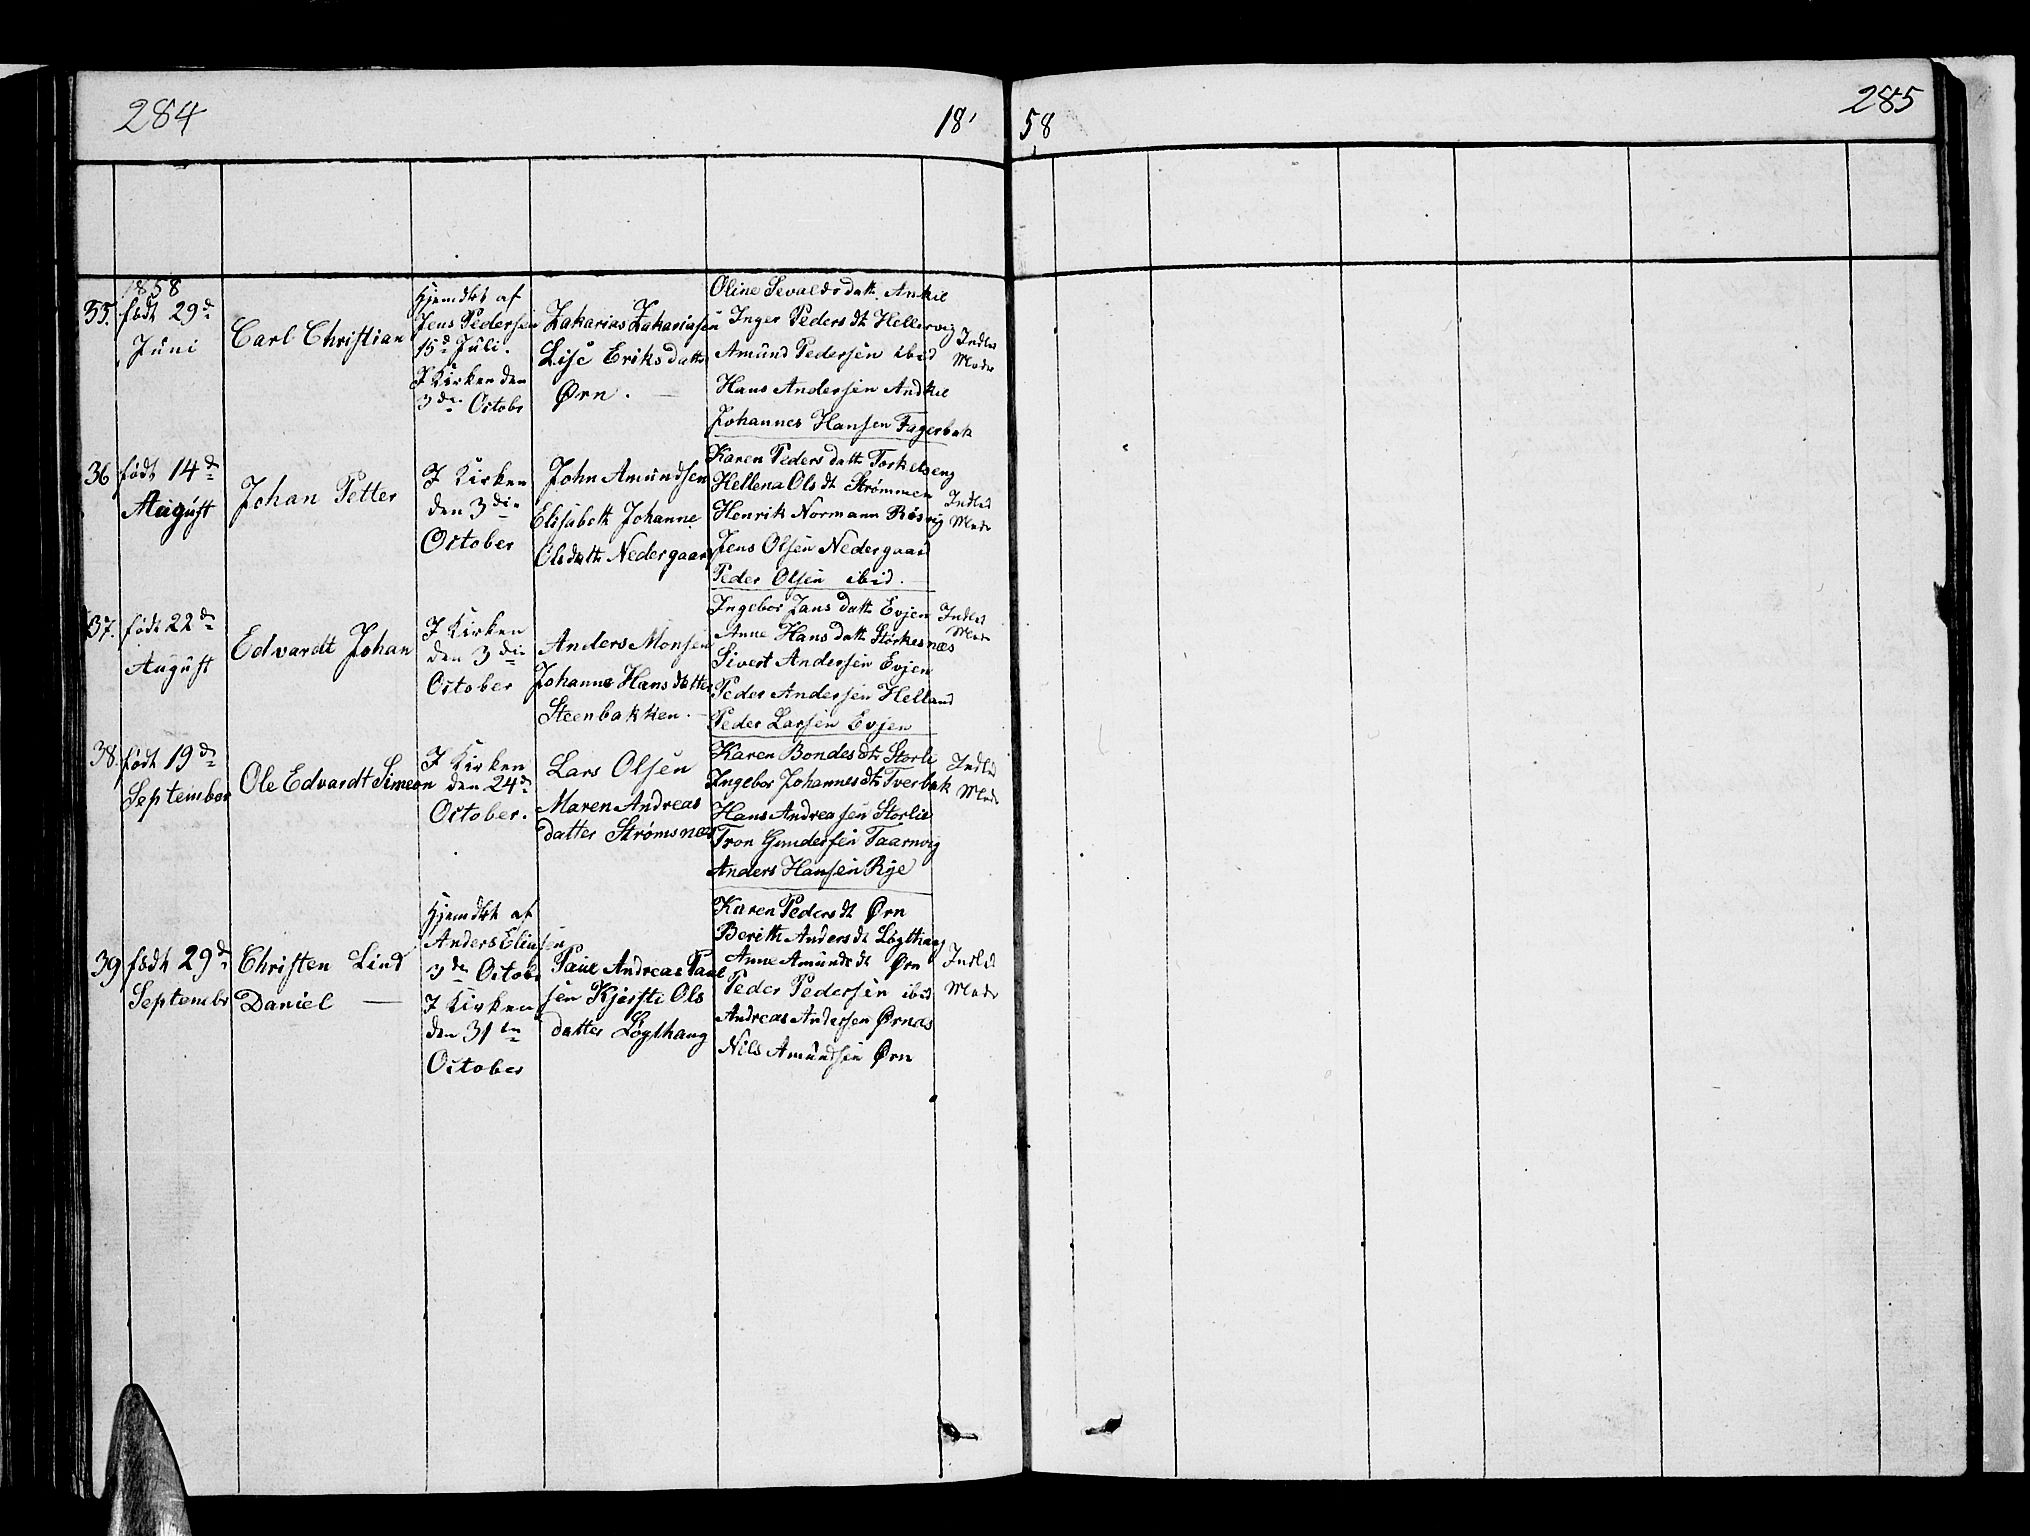 284
18
58
285
1858
35. født 29d
Juni
Carl Christian
Hjemdbt af
Jens Pedersen
15d Juli.
I Kirken den
3die Octobr
Zakarias Zakariasen
Lise Eriksdatter
Ørn.
Oline Sevaldsdatt. Ankil
Inger Pedersdt Hellervig
Amund Pedersen ibid
Hans Andersen Andkil
Johannes Hansen Fagerbak
Indled
Moder
36 født 14d
August
Johan Petter
I Kirken
den 3die
October
John Amundsen
Elisabeth Johanne
Olsdatt Nedergaard
Karen Pedersdatt Torkelseng
Hellena Olsdt Strømmen
Henrik Normann Røsvig
Jens Olsen Nedergaard
Peder Olsen ibid.
Indled
Modr
37. født 22d
August
Edvardt Johan
I Kirken
den 3die
October
Anders Monsen
Johanne Hansdatter
Steenbakken.
Ingebor Jansdatt Evjen
Anne Hansdatt Størkesnæs
Sivert Andersen Evjen
Peder Andersen Helland
Peder Larsen Evjen
Indled
Modr
38. født 19d
September
Ole Edvardt Simeon
I Kirken
den 24d
October.
Lars Olsen
Maren Andreas
datter Strømsnæs
Karen Bondesdt Storli
Ingebor Johannesdt Tverbak
Hans Andreasen Storlie
Tron Gundersen Taarnvig
Anders Hansen Rye
Indled
Modr
39 født 29d
Septembr
Christen Lind
Daniel
Hjemdbt af
Anders Eliasen
3de Octobr
I Kirken
den 31te
October
Paul Andreas Paul
sen Kjersti Ols
datter Løgthaug
Karen Pedersdt Ørn
Berith Andersdt Løgthaug
Anne Amundsdt Ørn
Peder Pedersen ibid
Andreas Andersen Ørnæs
Nils Amundsen Ørn
Indled
Modr